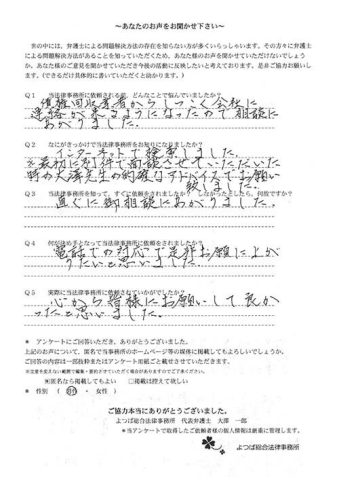 ～あなたのお声をお聞かせ下さい～
世の中には、弁護士による問題解決方法の存在を知らない方が多くいらっしゃいます。その方々に弁護士
による問題解決方法があることを知っていただくため、あなた様のお声を聞かせていただけないでしょう
か。あなた様のご意見を聞かせていただき今後の活動に反映したいと考えております。是非ご協力お願いし
ます。(できるだけ具体的に書いていただくと助かります。)
Q1 当法律事務所に依頼される前、どんなことで悩んでいましたか？
債権回収業者からしつこく会社に
連絡が来るようになったので相談に
あがりました。
Q2 なにがきっかけで当法律事務所をお知りになりましたか？
インターネットで検索しました。
※最初に別件で面談させていただいた
時の大澤先生の的確なアドバイスでお願い
致しました。
Q3 当法律事務所を知って、すぐに依頼をされましたか？ しなかったとしたら、何故ですか？
直ぐに御相談にあがりました。
Q4 何が決め手となって当法律事務所に依頼をされましたか？
電話での対応で是非お願に上が
りたいと思いました。
Q5 実際に当法律事務所に依頼されていかがでしたか？
心から皆様にお願いして良か
ったと思いました。
＊ アンケートにご回答いただき、ありがとうございました。
上記のお声について、匿名で当事務所のホームページ等の媒体に掲載してもよろしいでしょうか。
ご回答の内容は一部抜粋またはアンケート用紙ごと載せさせていただきます。
※注意を変えない範囲で編集・要約させていただく場合がありますのでご了承ください。
匿名なら掲載してもよい □掲載は控えて欲しい
＊ 性別 （ 男性 ・ 女性 ）
ご協力本当にありがとうございました。
よつば総合法律事務所 代表弁護士 大澤 一郎
＊当アンケートで取得したご依頼者様の個人情報は厳重に管理します。
よつば総合法律事務所